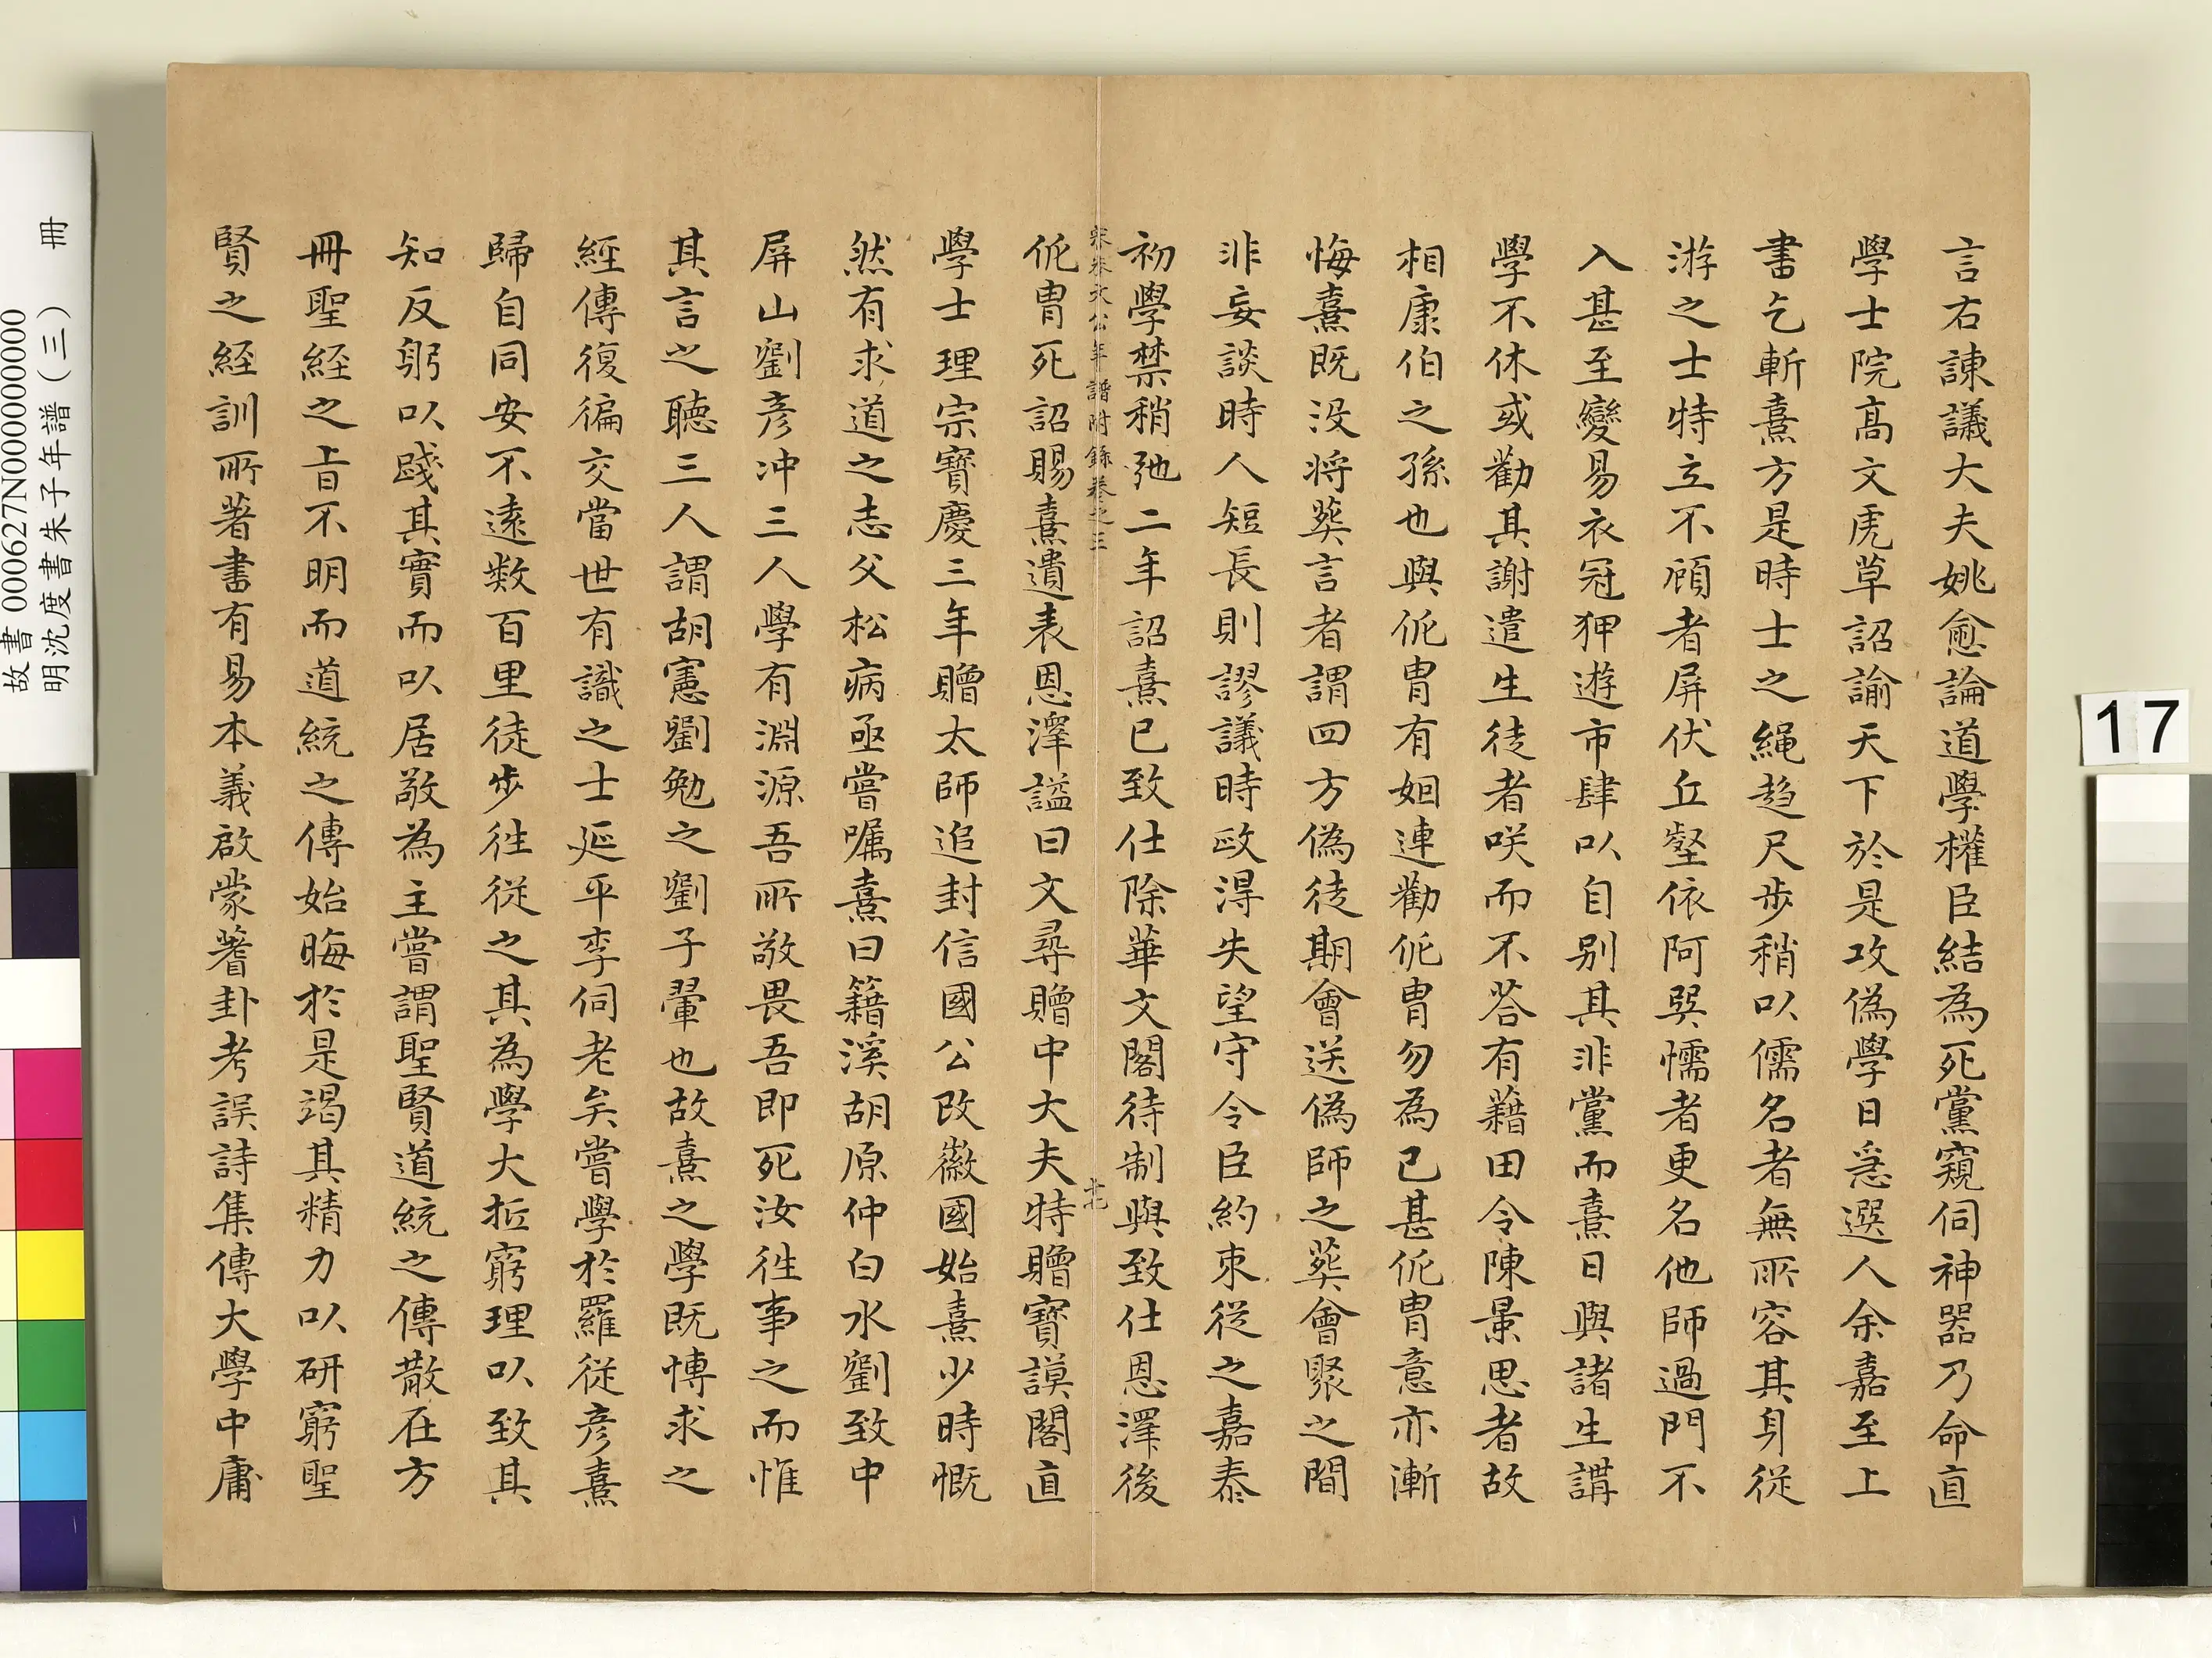 言右諫議大夫姚愈論道學權臣結為死黨窺伺神器乃命直
學士院高文虎草詔諭天下於是攻偽學日急選人余嘉至上
書乞斬熹方是時士之繩趨尺步稍以儒名者無所容其身從
游之士特立不顧者屏伏丘壑依阿巽懦者更名他師過門不
入甚至變易衣冠狎遊市肆以自別其非黨而熹日與諸生講
學不休或勸其謝遣生徒者咲而不荅有藉田令陳景思者故
相康伯之孫也與侂冑有姻連勸侂冑勿為已甚侂冑意亦漸
悔熹既沒將葬言者謂四方偽徒期會送偽師之葬會聚之間
非妄談時人短長則謬議時政得失望守令臣約束從之嘉泰
初學禁稍弛二年詔熹已致仕除華文閣待制與致仕恩澤後
宋朱文公年譜附錄卷之三
十七
侂冑死詔賜熹遺表恩澤諡曰文尋贈中大夫特贈寶謨閣直
學士理宗寶慶三年贈太師追封信國公改徽國始熹少時慨
然有求道之志父松病亟嘗囑熹曰籍溪胡原仲白水劉致中
屏山劉彥冲三人學有淵源吾所敬畏吾即死汝徃事之而惟
其言之聽三人謂胡憲劉勉之劉子翬也故熹之學既博求之
經傳復徧交當世有識之士延平李侗老矣嘗學於羅從彥熹
歸自同安不遠數百里徒步徃從之其為學大抵窮理以致其
知反躬以踐其實而以居敬為主嘗謂聖賢道統之傳散在方
冊聖經之旨不明而道統之傳始晦於是竭其精力以研窮聖
賢之經訓所著書有易本義啟蒙蓍卦考誤詩集傳大學中庸
故書 000627N000000000
明沈度書朱子年譜(三) 冊
17